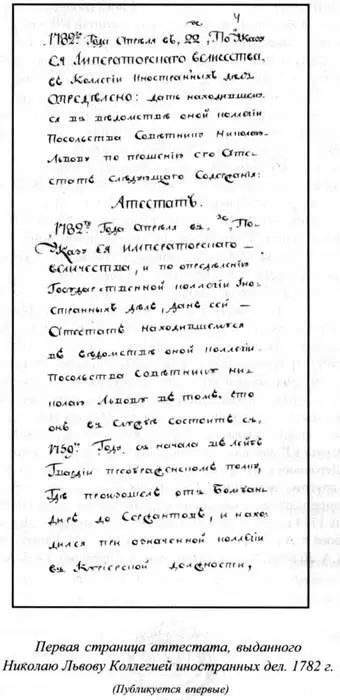 4
1782го Года Апреля въ, 22, По Указу
Ея Императорскаго Величества,
въ Коллегіи Иностранныхъ Делъ
Определено: дать находившемус
я въ ведомстве оной коллегіи
Посольства Советнику Николаю
Львову по прошенію его Атте-
статъ следующаго Содержанія:
Аттестатъ.
1782го Года Апреля въ, По
Указу Ея Императорскаго
Величества, и по определенію
Государственной коллегіи Ино-
странныхъ делъ, данъ сей
Аттестатъ находившемуся
въ ведомстве оной коллегіи
Посольства Советнику Ни-
колаю Львову въ томъ, что
онъ въ службе состоитъ съ,
1759го Году, съ начала въ Лейбъ
Гвардіи Преображенскомъ полку,
Где произошелъ отъ Бомбан-
дира до Сержантовъ, и нахо-
дился при означенной коллегіи
въ Курьерской должности,
Первая страница аттестата, выданного
Николаю Львову Коллегией иностранных дел. 1782 г.
(Публикуется впервые)